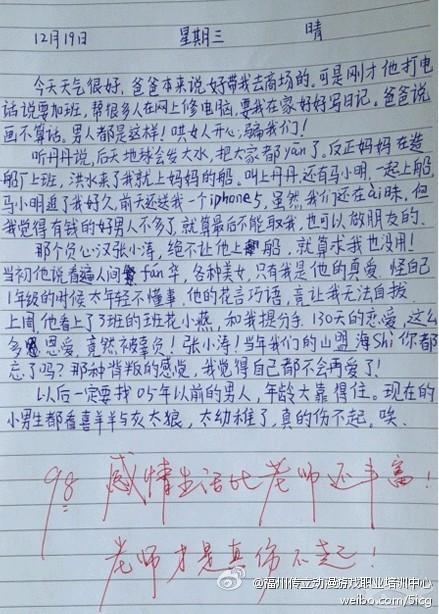 12月19日 星期三 晴
今天天气很好，爸爸本来说好带我去商场的。可是刚才他打电
话说要加班，帮很多人在网上修电脑，要我在家好好写日记。爸爸说
画不算话。男人都是这样！哄女人开心，骗我们！
听丹丹说，后天地球会发大水，把大家都yān了。反正妈妈在造
船厂上班，洪水来了我就上妈妈的船。叫上丹丹还有马小明，一起上船，
马小明追了我好久，前天还送我一个iphone5，虽然我们还在ài昧，但
我觉得有钱的好男人不多了，就算最后不能取我，也可以做朋友的。
那个负心汉张小涛，绝不让他上船，就算求我也没用！
当初他说看遍人间fán华，各种美女，只有我是他的真爱。怪自己
1年级的时候太年轻不懂事，他的花言巧语，竟让我无法自拔。
上周，他看上了3班的班花小燕，和我提分手。130天的恋爱，这么
多恩爱，竟然被辜负！张小涛！当年我们的山盟海shì你都
忘了吗？那种背叛的感觉，我觉得自己都不会再爱了！
以后一定要找05年以前的男人，年龄大靠得住。现在的
小男生都看喜羊羊与灰太狼，太幼稚了，真的伤不起，唉。
98 感情生活比老师还丰富！
老师才是真伤不起！
@福州传立动漫游戏职业培训中心
weibo.com/5icg